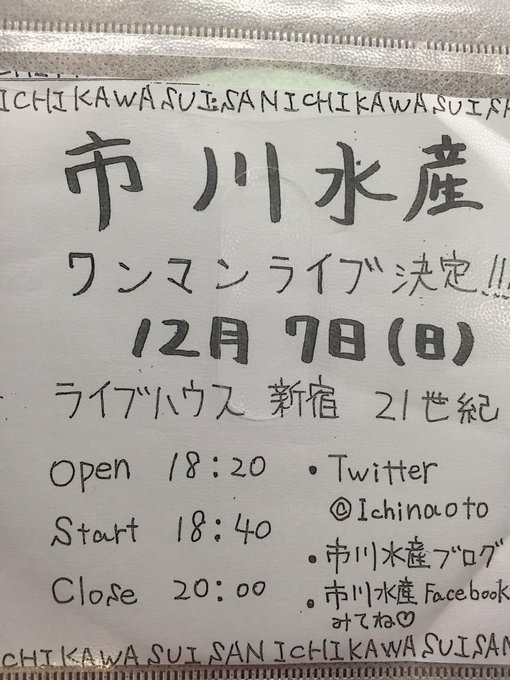 ICHIKAWASUISANICHIKAWASUISA
市川水産
ワンマンライブ決定!!!
12月 7日(日)
ライブハウス 新宿 21世紀
Open 18:20
Start 18:40
Close 20:00
・Twitter
@Ichinaoto
・市川水産ブログ
・市川水産Facebook
みてね♡
CHIKAWASUISANICHIKAWASUISAN